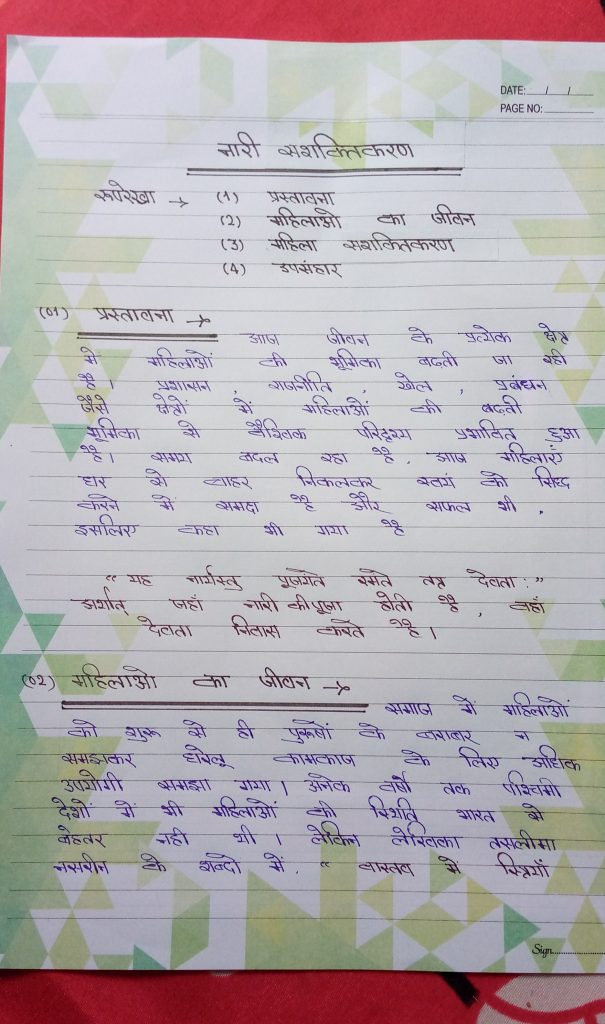 DATE: / /
PAGE NO:
नारी सशक्तिकरण
रुपरेखा → (1) प्रस्तावना
(2) महिलाओ का जीवन
(3) महिला सशक्तिकरण
(4) उपसंहार
(01) प्रस्तावना →
आज जीवन के प्रत्येक क्षेत्र
में महिलाओं की भूमिका बढती जा रही
है। प्रशासन, राजनीति, खेल, प्रबंधन
जैसे क्षेत्रों में महिलाओं की बढती
भूमिका से वैश्विक परिदृश्य प्रभावित हुआ
है। समय बदल रहा है. आज महिलाएँ
घर से बाहर निकलकर स्वयं को सिद्ध
करने में समक्ष है और सफल भी.
इसलिए कहा भी गया है
“यह नार्यस्तु पूजयेते रमेते तत्र देवता:”
अर्थात् जहाँ नारी की पूजा होती है, वहाँ
देवता निवास करते है।
(02) महिलाओ का जीवन →
समाज में महिलाओं
को शुरू से ही पुरूषों के बराबर न
समझकर घरेलू कामकाज के लिए अधिक
उपयोगी समझा गया। अनेक वर्षो तक पश्चिमी
देशों में भी महिलाओं की स्थिति भारत से
बेहतर नही थी। लेकिन लेखिका तसलीमा
नसरीन के शब्दो में. “वास्तव मे स्त्रियाँ
Sign